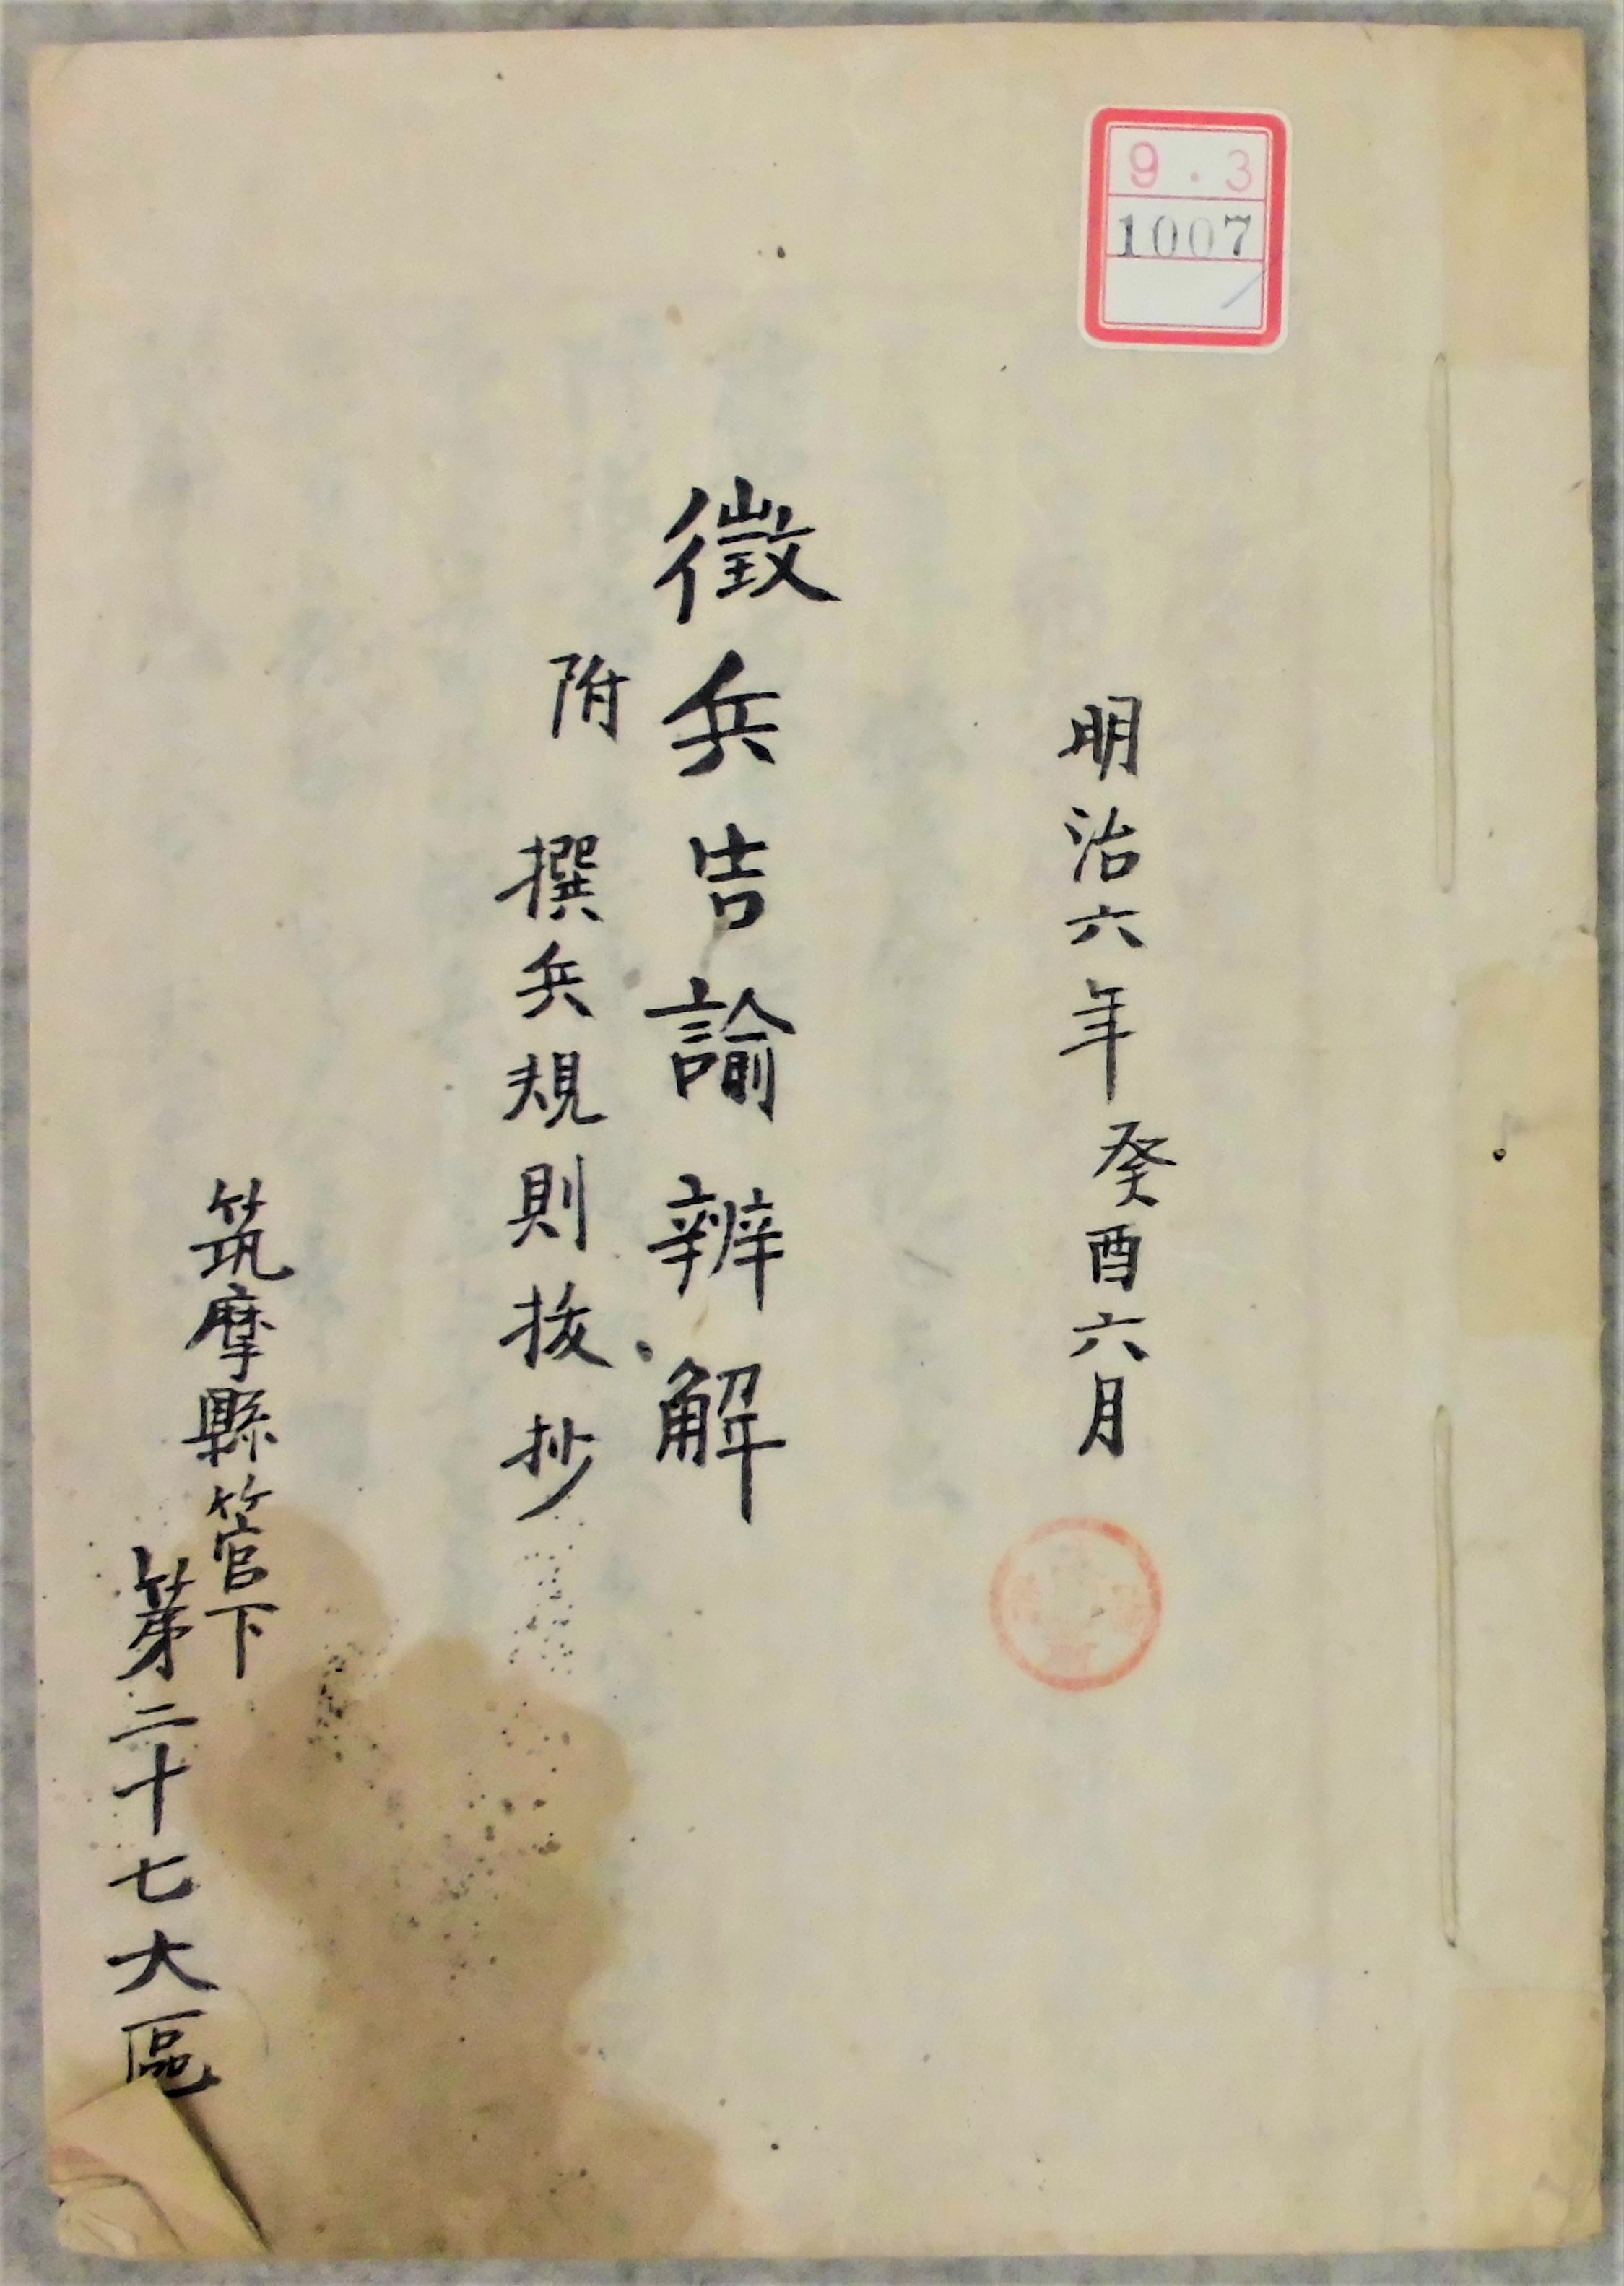 9.3
1007
明治六年癸酉六月
徴兵告諭辨解
附 撰兵規則抜抄
筑摩縣管下
第二十七大區